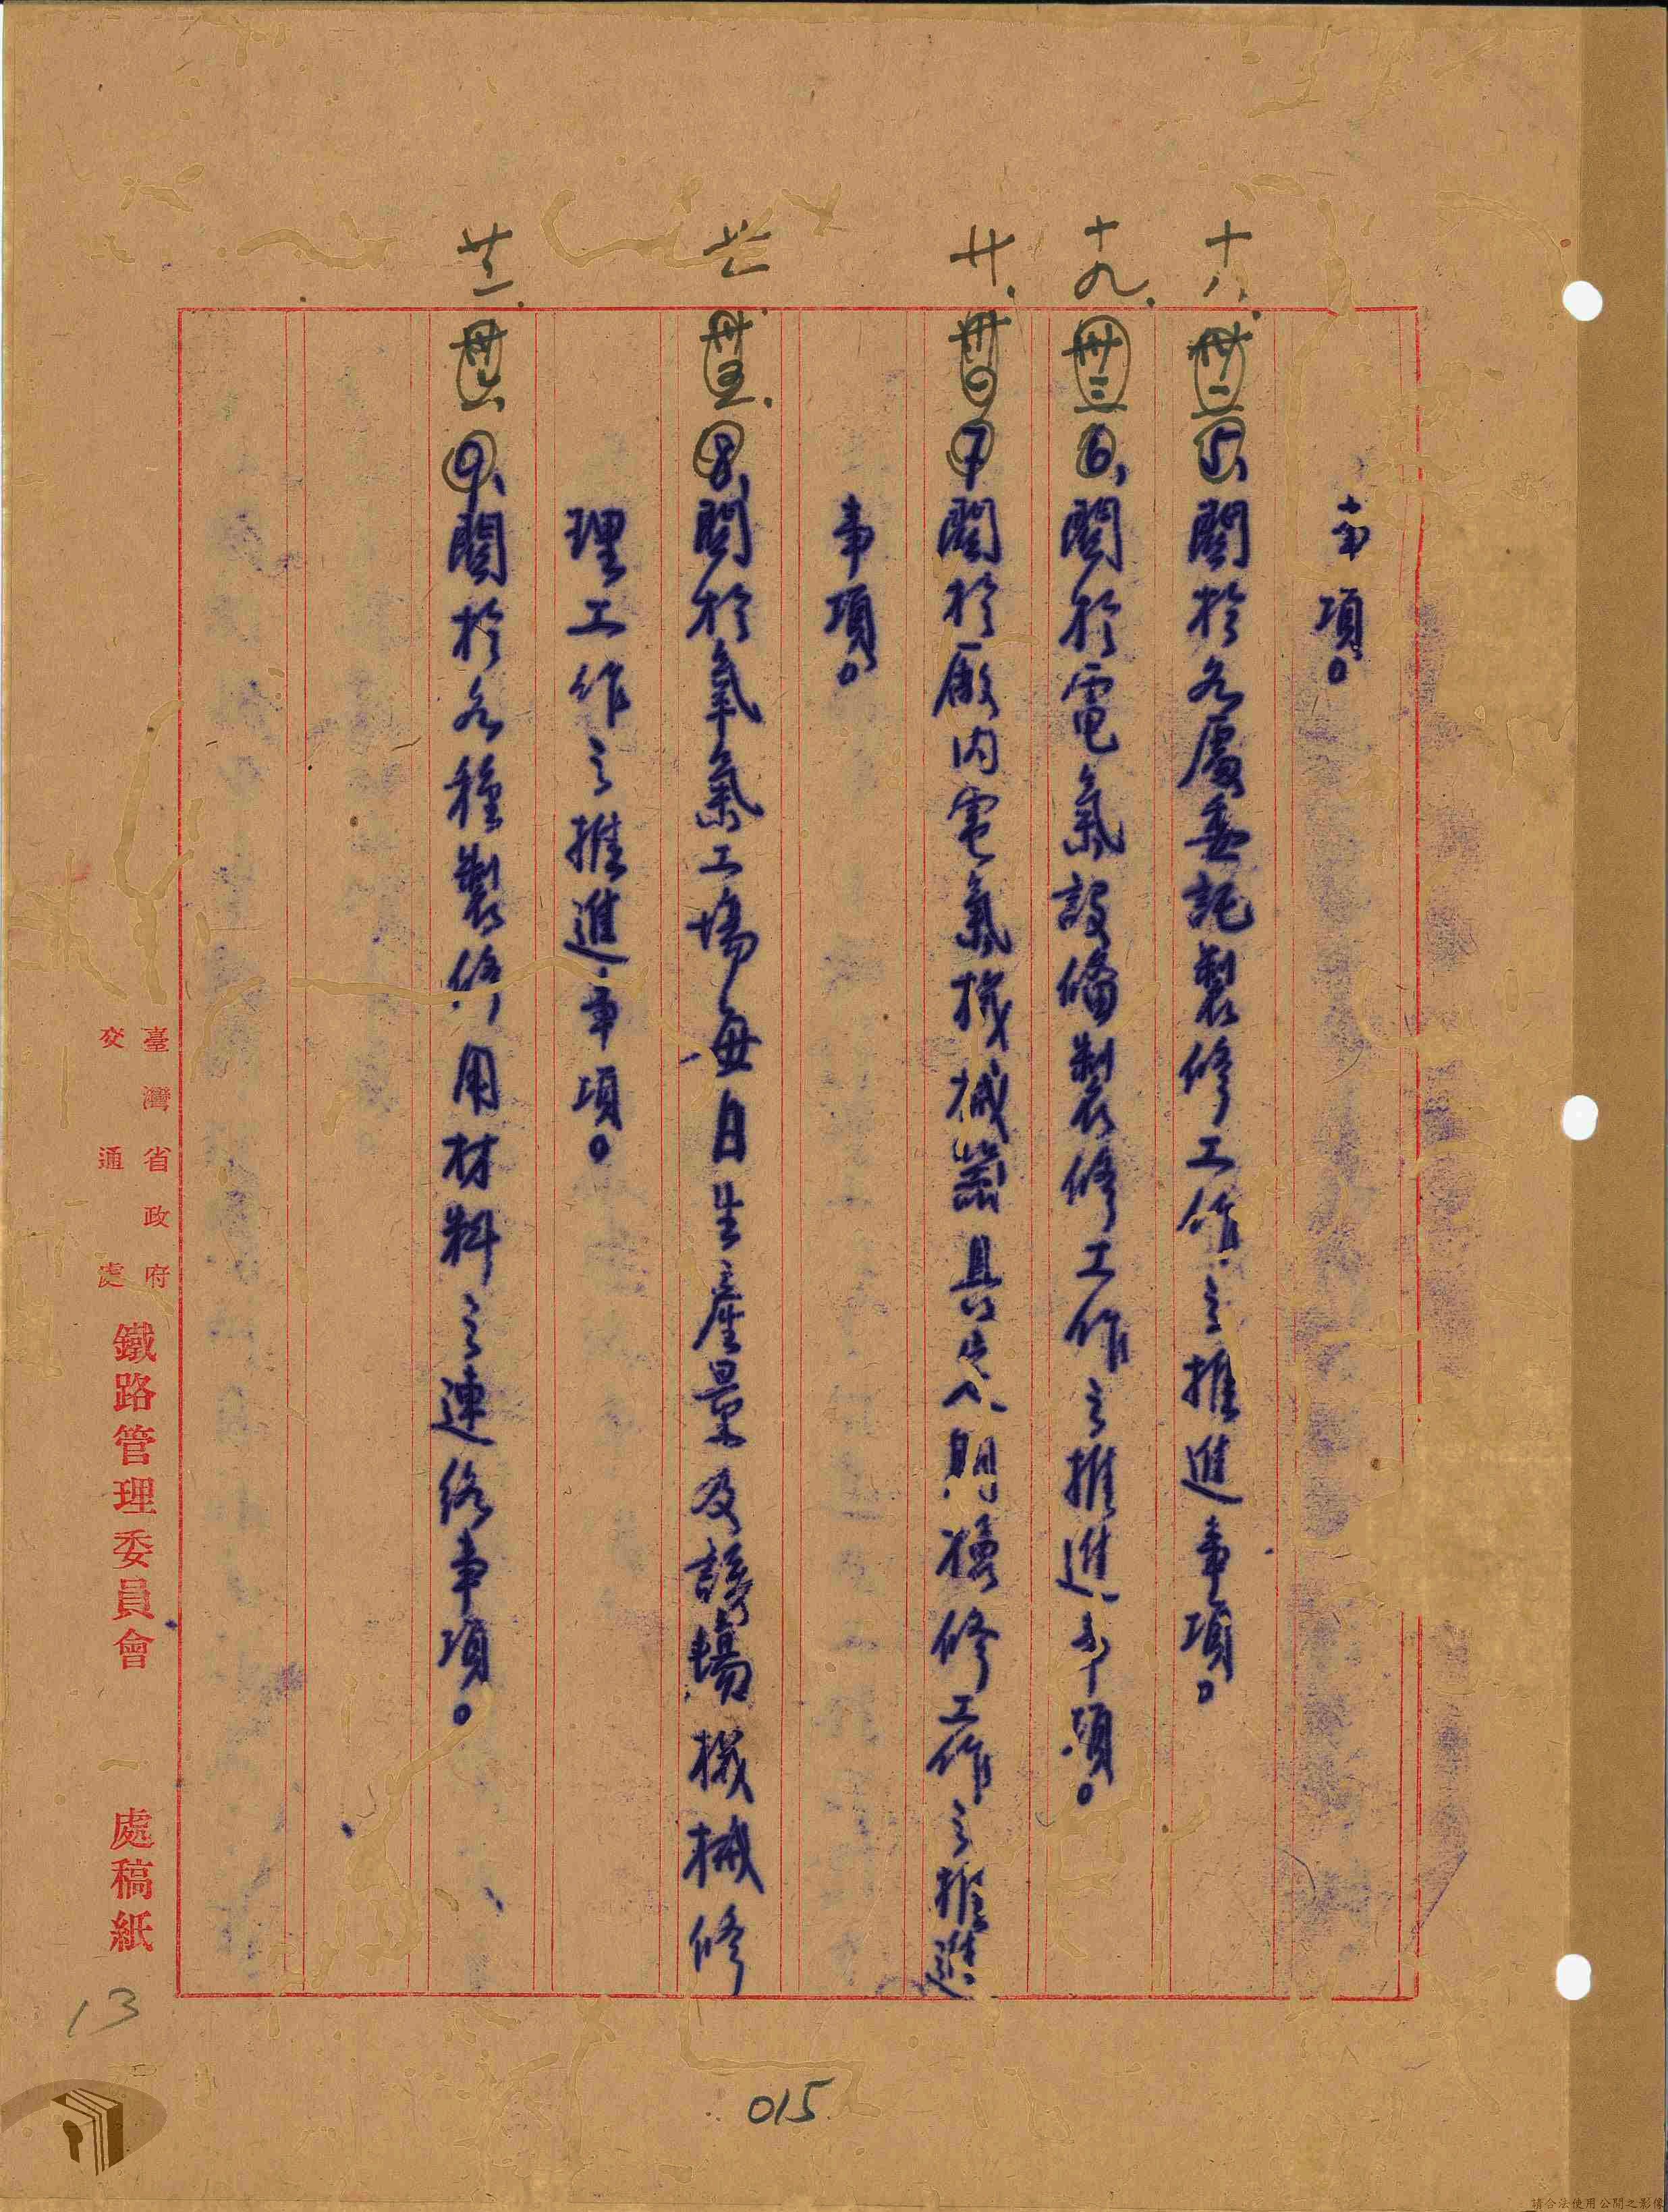 事項。
十八、卅二5、關於各處委託製修工作之推進事項。
十九、卅三6、關於電氣設備製修工作之推進事項。
廿、卅四7關於廠內電氣機械器具定期檢修工作之推進
事項。
廿一、卅五、8、關於氧氣工場每日生產量及該場機械修
理工作之推進事項。
廿二、卅六、9、關於各種製修用材料之連絡事項。
臺灣省政府
交通處
鐵路管理委員會 處稿紙
13
015
請合法使用公開之影像